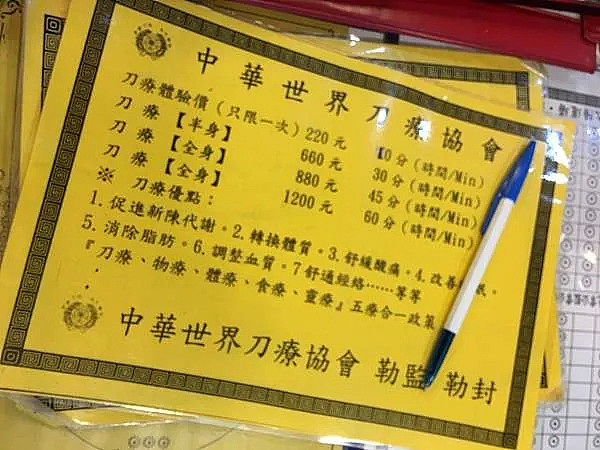 中華世界刀療協會
刀療體驗價（只限一次）220元 10分（時間/Min）
刀療【半身】 660元 30分（時間/Min）
刀療【全身】 880元 45分（時間/Min）
刀療【全身】 1200元 60分（時間/Min）
※ 刀療優點：
1.促進新陳代謝。2.轉換體質。3.舒緩酸痛。4.改善 眠。
5.消除脂肪。6.調整血質。7舒通經絡……等等
『刀療、物療、體療、食療、靈療』五療合一政策
中華世界刀療協會 勒監 勒封